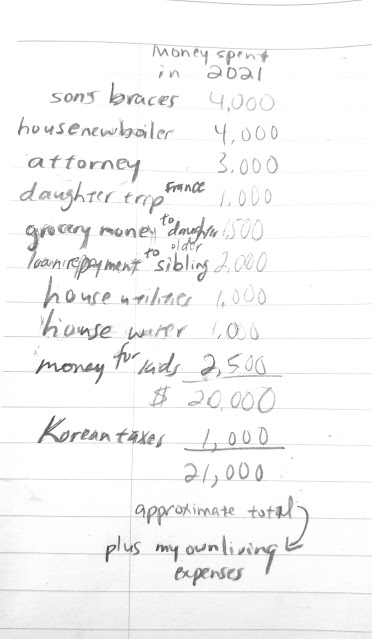 Money spent
in 2021
sons braces 4,000
house new boiler 4,000
attorney 3,000
daughter trip France 1,000
grocery money to daughter 1,500
loan repayment to older sibling 2,000
house utilities 1,000
house water 1,000
money for kids 2,500
$ 20,000
Korean taxes 1,000
21,000
approximate total
plus my own living
expenses